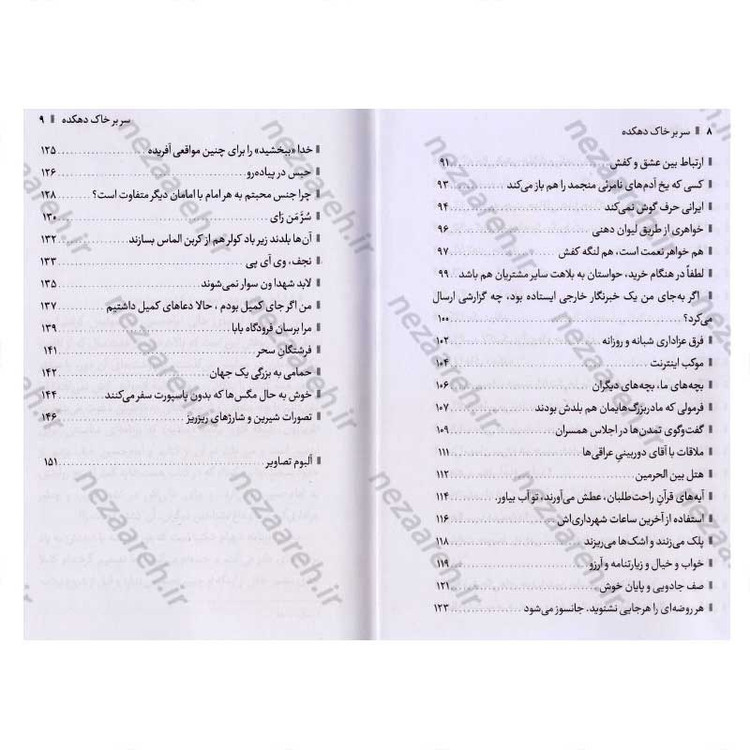 ۸ ‖ سر بر خاک دهکده
ارتباط بین عشق و کفش ۹۱
کسی که یخ آدم‌های نامرئی منجمد را هم باز می‌کند ۹۳
ایرانی حرف گوش نمی‌کند ۹۴
خواهری از طریق لیوان دهنی ۹۶
هم خواهر نعمت است، هم لنگه کفش ۹۷
لطفاً در هنگام خرید، حواستان به بلاهت سایر مشتریان هم باشد ۹۹
اگر به‌جای من یک خبرنگار خارجی ایستاده بود، چه گزارشی ارسال
می‌کرد؟ ۱۰۰
فرق عزاداری شبانه و روزانه ۱۰۲
موکب اینترنت ۱۰۴
بچه‌های ما، بچه‌های دیگران ۱۰۶
فرمولی که مادربزرگ‌هایمان هم بلدش بودند ۱۰۷
گفت‌وگوی تمدن‌ها در اجلاس همسران ۱۰۹
ملاقات با آقای دوربینیِ عراقی‌ها ۱۱۱
هتل بین الحرمین ۱۱۲
آیه‌های قرآنِ راحت‌طلبان، عطش می‌آورند، تو آب بیاور. ۱۱۴
استفاده از آخرین ساعات شهرداری‌اش ۱۱۶
پلک می‌زنند و اشک‌ها می‌ریزند ۱۱۸
خواب و خیال و زیارتنامه و آرزو ۱۱۹
صف جادویی و پایان خوش ۱۲۱
هر روضه‌ای را هرجایی نشنوید. جانسوز می‌شود ۱۲۳
سر بر خاک دهکده ‖ ۹
خدا «ببخشید» را برای چنین مواقعی آفریده ۱۲۵
حبس در پیاده‌رو ۱۲۶
چرا جنس محبتم به هر امام با امامان دیگر متفاوت است؟ ۱۲۸
سُرَّ مَن رَای ۱۳۰
آن‌ها بلدند زیر باد کولر هم از کربن الماس بسازند ۱۳۲
نجف، وی آی پی ۱۳۳
لابد شهدا ون سوار نمی‌شوند ۱۳۵
من اگر جای کمیل بودم ، حالا دعاهای کمیل داشتیم ۱۳۷
مرا برسان فرودگاه بابا ۱۳۹
فرشتگانِ سحر ۱۴۱
حمامی به بزرگی یک جهان ۱۴۲
خوش به حال مگس‌ها که بدون پاسپورت سفر می‌کنند ۱۴۴
تصورات شیرین و شارژهای ریزریز ۱۴۶
آلبوم تصاویر ۱۵۱
nezaareh.ir